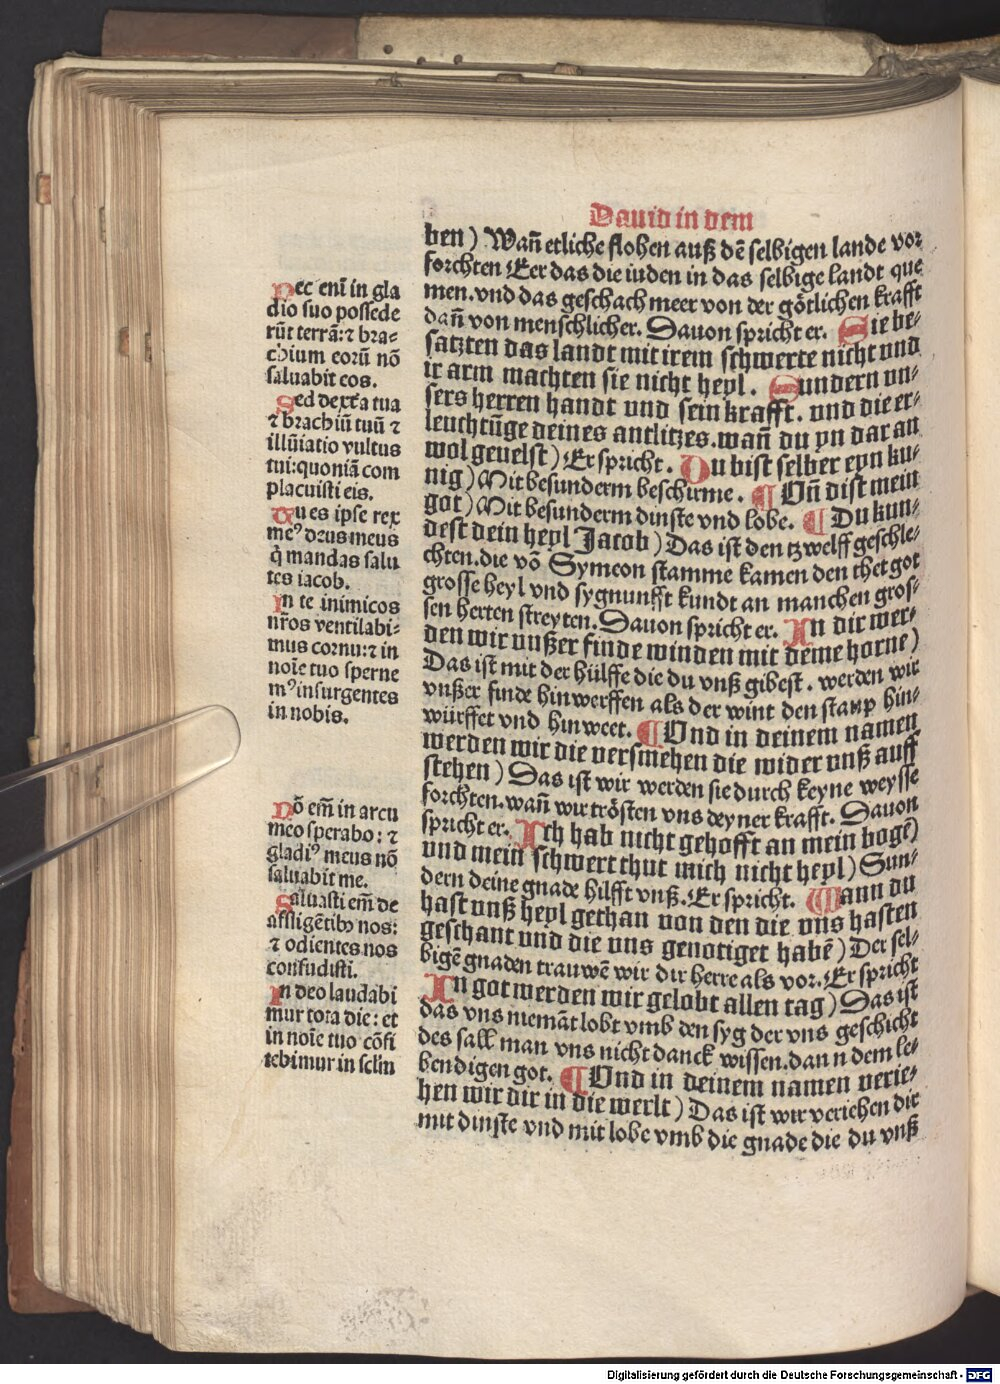 Dauid in dem
ben) Wañ etliche flohen auß dē selbigen lande vor
forchten Eer das die iuden in das selbige landt que
men. vnd das geschach meer von der götlichen krafft
dañ von menschlicher. Dauon spricht er. Sie be⸗
satzten das landt mit irem schwerte nicht und
ir arm machten sie nicht heyl. Sundern un⸗
sers herren handt und sein krafft. und die er⸗
leuchtūge deines antlitzes. wañ du yn dar an
wol geuelst) Er spricht. Du bist selber eyn ku⸗
nig) Mit besunderm beschirme. ¶ Vñ dist mein
got) Mit besunderm dinste vnd lobe. ¶ Du kun⸗
dest dein heyl Jacob) Das ist den tzwelff geschle⸗
chten. die vō Symeon stamme kamen den thet got
grosse heyl vnd sygnunfft kundt an manchen gros⸗
sen herten streyten. Dauon spricht er. In dir wer⸗
den wir unßer finde winden mit deme horne)
Das ist mit der hülffe die du vnß gibest. werden wir
vnßer finde hin werffen als der wint den staup hin⸗
würffet vnd hin weet. ¶ Vnd in deinem namen
werden wir die versmehen die wider unß auff
stehen) Das ist wir werden sie durch keyne weysse
forchten. wañ wir trösten vns deyner krafft. Dauon
spricht er. Ich hab nicht gehofft an mein bogē)
und mein schwert thut mich nicht heyl) Sun⸗
dern deine gnade hilfft vnß. Er spricht. Wann du
hast unß heyl gethan von den die uns hasten
geschant und die uns genotiget habē) Der sel⸗
bigē gnaden trauwē wir dir herre als vor. Er spricht
In got werden wir gelobt allen tag) Das ist
das vns niemāt lobt vmb den syg der vns geschicht
des sall man vns nicht danck wissen. dan n dem le⸗
bendigen got. ¶ Vnd in deinem namen verie⸗
hen wir dir in die werlt) Das ist wir veriehen dir
mit dinste vnd mit lobe vmb die gnade die du vnß
Nec enī in gla
dio suo possede
rūt terrā: ⁊ bra⸗
chium eorū nō
saluabit eos.
Sed dextra tua
⁊ brachiū tuū ⁊
illūiatio vultus
tui: quoniā com
placuisti eis.
Tu es ipse rex
meꝰ deus meus
q̇ mandas salu
tes iacob.
In te inimicos
nr̄os ventilabi⸗
mus cornu: ⁊ in
noīe tuo sperne
mꝰ insurgentes
in nobis.
Nō em̄ in arcu
meo sperabo: ⁊
gladiꝰ meus nō
saluabit me.
Saluasti em̄ de
affligētibꝰ nos:
⁊ odientes nos
confudisti.
In deo laudabi
mur tota die: et
in noīe tuo cōfi
tebimur in sclm̄
Digitalisierung gefördert durch die Deutsche Forschungsgemeinschaft - DFG